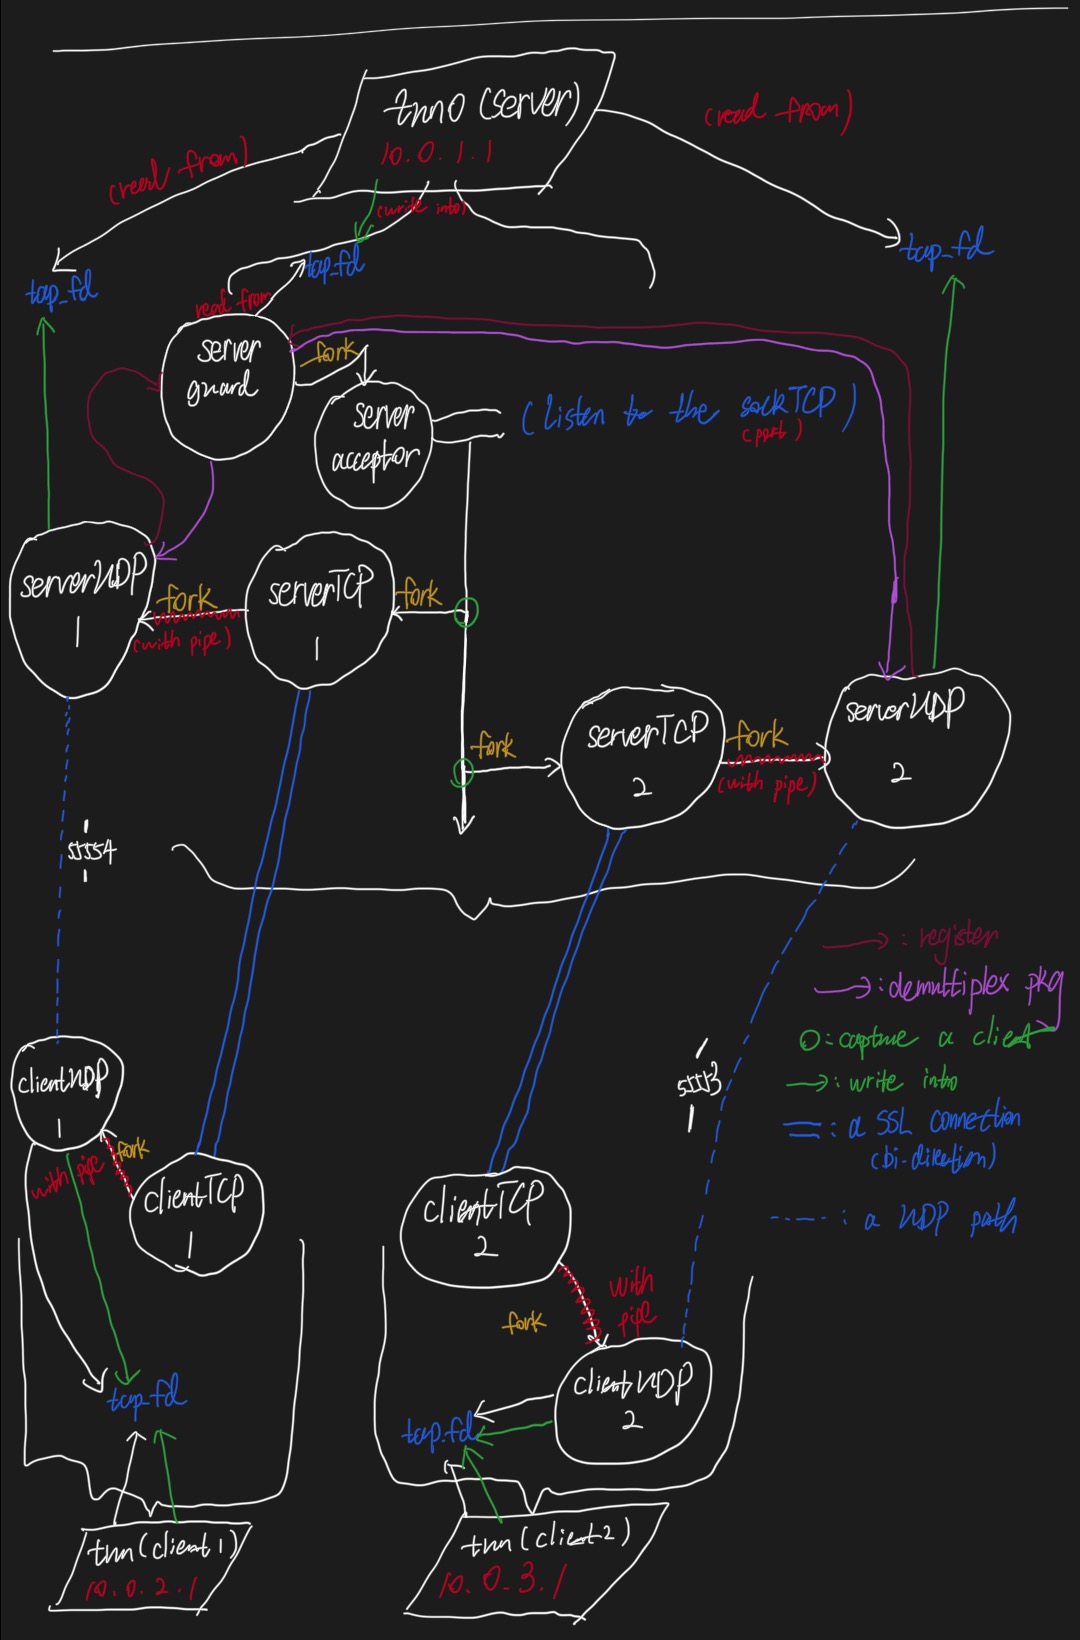 tun0 (server)
10.0.1.1
(read from)
(read from)
(write into)
tap_fd
tap_fd
tap_fd
read from
server
guard
fork
server
acceptor
(listen to the sockTCP)
(port)
serverUDP
1
fork
(with pipe)
serverTCP
1
fork
fork
serverTCP
2
fork
(with pipe)
serverUDP
2
55554
: register
: demultiplex pkg
: capture a client
: write into
: a SSL connection
(bi-direction)
: a UDP path
55553
clientUDP
1
with pipe
fork
clientTCP
1
clientTCP
2
with
pipe
fork
clientUDP
2
tap_fd
tap_fd
tun(client1)
10.0.2.1
tun(client2)
10.0.3.1